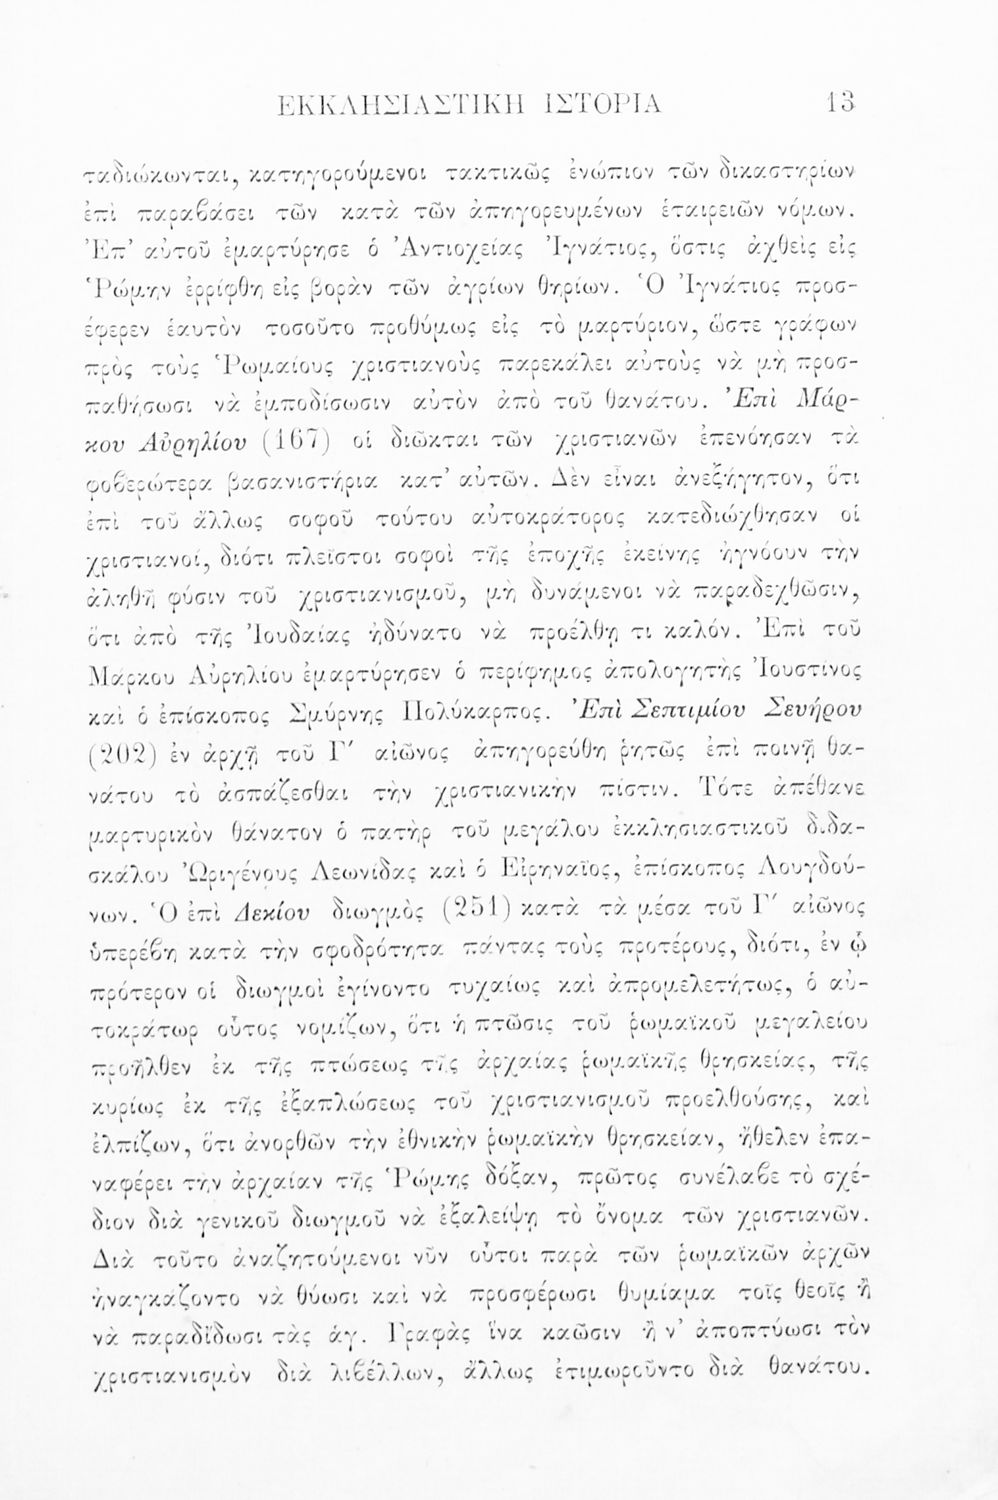 ΕΚΚΛΗΣΙΑΣΤΙΚΗ ΙΣΤΟΡΙΑ 13
ταδιώκωνται, κατηγορούμενοι τακτικῶς ἐνώπιον τῶν δικαστηρίων
ἐπὶ παραβάσει τῶν κατὰ τῶν ἀπηγορευμένων ἑταιρειῶν νόμων.
Ἐπ’ αὐτοῦ ἐμαρτύρησε ὁ Ἀντιοχείας Ἰγνάτιος, ὅστις ἀχθεὶς εἰς
Ῥώμην ἐρρίφθη εἰς βορὰν τῶν ἀγρίων θηρίων. Ὁ Ἰγνάτιος προσ-
έφερεν ἑαυτὸν τοσοῦτο προθύμως εἰς τὸ μαρτύριον, ὥστε γράφων
πρὸς τοὺς Ῥωμαίους χριστιανοὺς παρεκάλει αὐτοὺς νὰ μὴ προσ-
παθήσωσι νὰ ἐμποδίσωσιν αὐτὸν ἀπὸ τοῦ θανάτου. Ἐπὶ Μάρ-
κου Αὐρηλίου (167) οἱ διῶκται τῶν χριστιανῶν ἐπενόησαν τὰ
φοβερώτερα βασανιστήρια κατ’ αὐτῶν. Δὲν εἶναι ἀνεξήγητον, ὅτι
ἐπὶ τοῦ ἄλλως σοφοῦ τούτου αὐτοκράτορος κατεδιώχθησαν οἱ
χριστιανοί, διότι πλεῖστοι σοφοὶ τῆς ἐποχῆς ἐκείνης ἠγνόουν τὴν
ἀληθῆ φύσιν τοῦ χριστιανισμοῦ, μὴ δυνάμενοι νὰ παραδεχθῶσιν,
ὅτι ἀπὸ τῆς Ἰουδαίας ἠδύνατο νὰ προέλθῃ τι καλόν. Ἐπὶ τοῦ
Μάρκου Αὐρηλίου ἐμαρτύρησεν ὁ περίφημος ἀπολογητὴς Ἰουστῖνος
καὶ ὁ ἐπίσκοπος Σμύρνης Πολύκαρπος. Ἐπὶ Σεπτιμίου Σευήρου
(202) ἐν ἀρχῇ τοῦ Γ΄ αἰῶνος ἀπηγορεύθη ῥητῶς ἐπὶ ποινῇ θα-
νάτου τὸ ἀσπάζεσθαι τὴν χριστιανικὴν πίστιν. Τότε ἀπέθανε
μαρτυρικὸν θάνατον ὁ πατὴρ τοῦ μεγάλου ἐκκλησιαστικοῦ διδα-
σκάλου Ὠριγένους Λεωνίδας καὶ ὁ Εἰρηναῖος, ἐπίσκοπος Λουγδού-
νων. Ὁ ἐπὶ Δεκίου διωγμὸς (251) κατὰ τὰ μέσα τοῦ Γ΄ αἰῶνος
ὑπερέβη κατὰ τὴν σφοδρότητα πάντας τοὺς προτέρους, διότι, ἐν ᾧ
πρότερον οἱ διωγμοὶ ἐγίνοντο τυχαίως καὶ ἀπρομελετήτως, ὁ αὐ-
τοκράτωρ οὗτος νομίζων, ὅτι ἡ πτῶσις τοῦ ῥωμαϊκοῦ μεγαλείου
προῆλθεν ἐκ τῆς πτώσεως τῆς ἀρχαίας ῥωμαϊκῆς θρησκείας, τῆς
κυρίως ἐκ τῆς ἐξαπλώσεως τοῦ χριστιανισμοῦ προελθούσης, καὶ
ἐλπίζων, ὅτι ἀνορθῶν τὴν ἐθνικὴν ῥωμαϊκὴν θρησκείαν, ἤθελεν ἐπα-
ναφέρει τὴν ἀρχαίαν τῆς Ῥώμης δόξαν, πρῶτος συνέλαβε τὸ σχέ-
διον διὰ γενικοῦ διωγμοῦ νὰ ἐξαλείψῃ τὸ ὄνομα τῶν χριστιανῶν.
Διὰ τοῦτο ἀναζητούμενοι νῦν οὗτοι παρὰ τῶν ῥωμαϊκῶν ἀρχῶν
ἠναγκάζοντο νὰ θύωσι καὶ νὰ προσφέρωσι θυμίαμα τοῖς θεοῖς ἢ
νὰ παραδίδωσι τὰς ἁγ. Γραφὰς ἵνα καῶσιν ἢ ν’ ἀποπτύωσι τὸν
χριστιανισμὸν διὰ λιβέλλων, ἄλλως ἐτιμωροῦντο διὰ θανάτου.